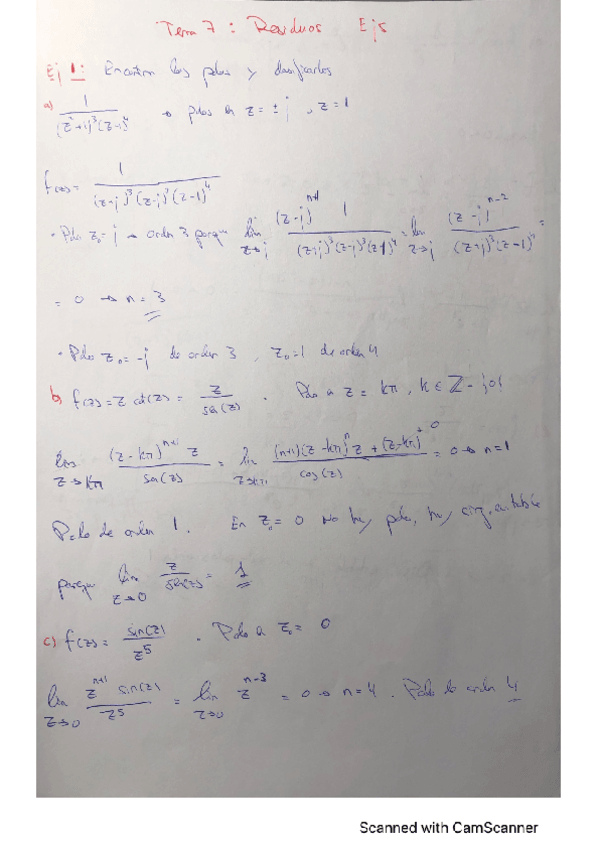 Tema 7: Residuos Ejs
Ej 1: Encontrar los polos y clasificarlos
a) 1/((z²+1)³(z-1)⁴) → polos en z = ± j, z = 1
f(z) = 1/((z-j)³(z-j)³(z-1)⁴)
• Polo z₀ = j → orden 3 porque lim z→j (z-j)^(n+1) 1/((z+j)³(z-j)³(z-1)⁴) = lim z→j (z-j)^(n-2)/((z+j)³(z-1)⁴) =
= 0 → n = 3
• Polo z₀ = -j de orden 3, z₀ = 1 de orden 4
b) f(z) = z cot(z) = z/sen(z). Polo a z = kπ, k ∈ ℤ - {0}
lim z→kπ (z-kπ)^(n+1) z/sen(z) = lim z→kπ ((n+1)(z-kπ)^n z + (z-kπ)^+ 0)/cos(z) = 0 → n = 1
Polo de orden 1. En z₀ = 0 no hay polo, hay sing. evitable
porque lim z→0 z/sen(z) = 1
c) f(z) = sin(z)/z⁵. Polo a z₀ = 0
lim z→0 z^(n+1) sin(z)/z⁵ = lim z→0 z^(n-3) = 0 → n = 4. Polo de orden 4
Scanned with CamScanner